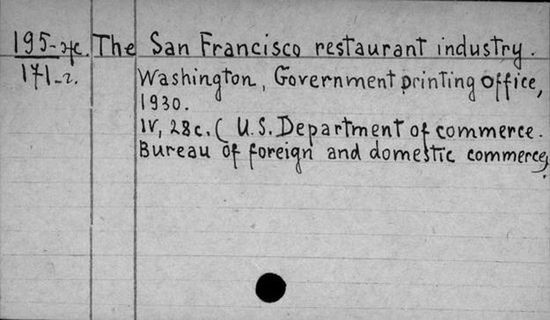 195-жс. The San Francisco restaurant industry.
171-2. Washington, Government printing office,
1930.
IV, 28c. ( U.S. Department of commerce.
Bureau of foreign and domestic commerce).